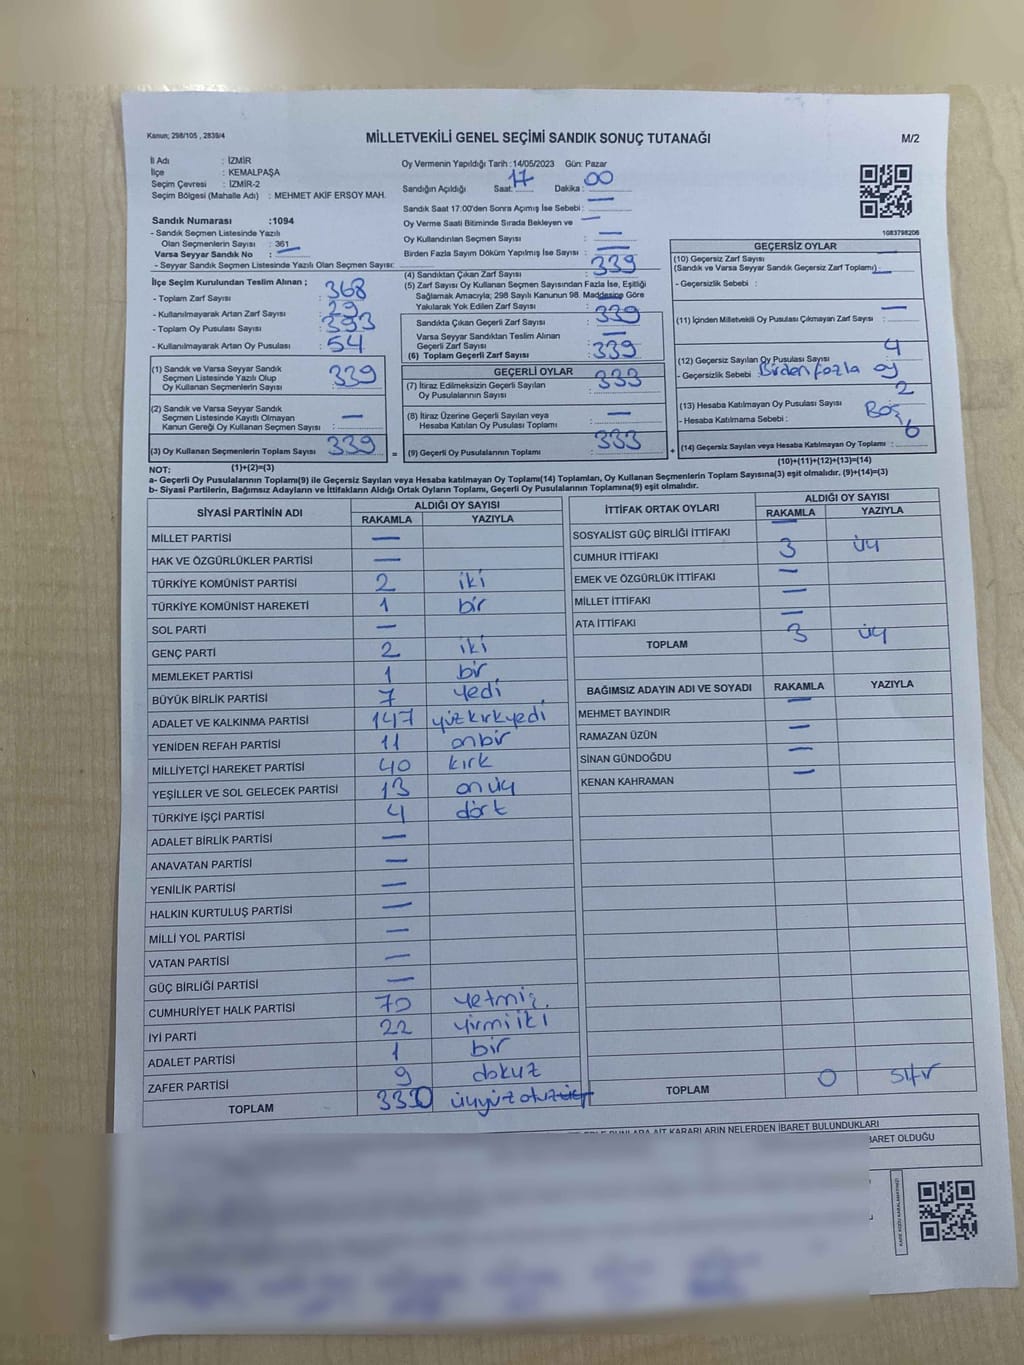 Kanun; 298/105 , 2839/4
MİLLETVEKİLİ GENEL SEÇİMİ SANDIK SONUÇ TUTANAĞI
M/2
İl Adı : İZMİR
İlçe : KEMALPAŞA
Seçim Çevresi : İZMİR-2
Seçim Bölgesi (Mahalle Adı) : MEHMET AKİF ERSOY MAH.
Oy Vermenin Yapıldığı Tarih :14/05/2023 Gün: Pazar
Sandığın Açıldığı Saat: 17 Dakika : 00
Sandık Saat 17:00'den Sonra Açımış İse Sebebi : —
Oy Verme Saati Bitiminde Sırada Bekleyen ve —
Oy Kullandırılan Seçmen Sayısı : —
Birden Fazla Sayım Döküm Yapılmış İse Sayısı : —
1083798206
Sandık Numarası :1094
- Sandık Seçmen Listesinde Yazılı
Olan Seçmenlerin Sayısı : 361
Varsa Seyyar Sandık No : —
- Seyyar Sandık Seçmen Listesinde Yazılı Olan Seçmen Sayısı:
İlçe Seçim Kurulundan Teslim Alınan ;
- Toplam Zarf Sayısı : 368
- Kullanılmayarak Artan Zarf Sayısı : 29
- Toplam Oy Pusulası Sayısı : 393
- Kullanılmayarak Artan Oy Pusulası : 54
(1) Sandık ve Varsa Seyyar Sandık
Seçmen Listesinde Yazılı Olup
Oy Kullanan Seçmenlerin Sayısı : 339
(2) Sandık ve Varsa Seyyar Sandık
Seçmen Listesinde Kayıtlı Olmayan
Kanun Gereği Oy Kullanan Seçmen Sayısı : —
(3) Oy Kullanan Seçmenlerin Toplam Sayısı : 339
(4) Sandıktan Çıkan Zarf Sayısı : 339
(5) Zarf Sayısı Oy Kullanan Seçmen Sayısından Fazla İse, Eşitliği
Sağlamak Amacıyla; 298 Sayılı Kanunun 98. Maddesine Göre
Yakılarak Yok Edilen Zarf Sayısı : —
Sandıkta Çıkan Geçerli Zarf Sayısı : 339
Varsa Seyyar Sandıktan Teslim Alınan
Geçerli Zarf Sayısı : —
(6) Toplam Geçerli Zarf Sayısı : 339
GEÇERLİ OYLAR
(7) İtiraz Edilmeksizin Geçerli Sayılan
Oy Pusulalarının Sayısı : 333
(8) İtiraz Üzerine Geçerli Sayılan veya
Hesaba Katılan Oy Pusulası Toplamı : —
(9) Geçerli Oy Pusulalarının Toplamı : 333
GEÇERSİZ OYLAR
(10) Geçersiz Zarf Sayısı
(Sandık ve Varsa Seyyar Sandık Geçersiz Zarf Toplamı) : —
- Geçersizlik Sebebi :
(11) İçinden Milletvekili Oy Pusulası Çıkmayan Zarf Sayısı : —
(12) Geçersiz Sayılan Oy Pusulası Sayısı : 4
- Geçersizlik Sebebi : Birden fazla oy
(13) Hesaba Katılmayan Oy Pusulası Sayısı : 2
- Hesaba Katılmama Sebebi : Boş
(14) Geçersiz Sayılan veya Hesaba Katılmayan Oy Toplamı : 6
NOT: (1)+(2)=(3)
(10)+(11)+(12)+(13)=(14)
a- Geçerli Oy Pusulalarının Toplamı(9) ile Geçersiz Sayılan veya Hesaba katılmayan Oy Toplam(14) Toplamları, Oy Kullanan Seçmenlerin Toplam Sayısına(3) eşit olmalıdır. (9)+(14)=(3)
b- Siyasi Partilerin, Bağımsız Adayların ve İttifakların Aldığı Ortak Oyların Toplamı, Geçerli Oy Pusulalarının Toplamına(9) eşit olmalıdır.
SİYASİ PARTİNİN ADI ALDIĞI OY SAYISI
RAKAMLA YAZIYLA
MİLLET PARTİSİ —
HAK VE ÖZGÜRLÜKLER PARTİSİ —
TÜRKİYE KOMÜNİST PARTİSİ 2 iki
TÜRKİYE KOMÜNİST HAREKETİ 1 bir
SOL PARTİ —
GENÇ PARTİ 2 iki
MEMLEKET PARTİSİ 1 bir
BÜYÜK BİRLİK PARTİSİ 7 yedi
ADALET VE KALKINMA PARTİSİ 147 yüzkırkyedi
YENİDEN REFAH PARTİSİ 11 onbir
MİLLİYETÇİ HAREKET PARTİSİ 40 kırk
YEŞİLLER VE SOL GELECEK PARTİSİ 13 onüç
TÜRKİYE İŞÇİ PARTİSİ 4 dört
ADALET BİRLİK PARTİSİ —
ANAVATAN PARTİSİ —
YENİLİK PARTİSİ —
HALKIN KURTULUŞ PARTİSİ —
MİLLİ YOL PARTİSİ —
VATAN PARTİSİ —
GÜÇ BİRLİĞİ PARTİSİ —
CUMHURİYET HALK PARTİSİ 70 yetmiş.
İYİ PARTİ 22 yirmiiki
ADALET PARTİSİ 1 bir
ZAFER PARTİSİ 9 dokuz
TOPLAM 330 üçyüzotuzüç
İTTİFAK ORTAK OYLARI ALDIĞI OY SAYISI
RAKAMLA YAZIYLA
SOSYALİST GÜÇ BİRLİĞİ İTTİFAKI —
CUMHUR İTTİFAKI 3 üç
EMEK VE ÖZGÜRLÜK İTTİFAKI —
MİLLET İTTİFAKI —
ATA İTTİFAKI —
TOPLAM 3 üç
BAĞIMSIZ ADAYIN ADI VE SOYADI RAKAMLA YAZIYLA
MEHMET BAYINDIR —
RAMAZAN ÜZÜN —
SİNAN GÜNDOĞDU —
KENAN KAHRAMAN —
TOPLAM 0 sıfır
KARARLARIN NELERDEN İBARET BULUNDUKLARI
İBARET OLDUĞU